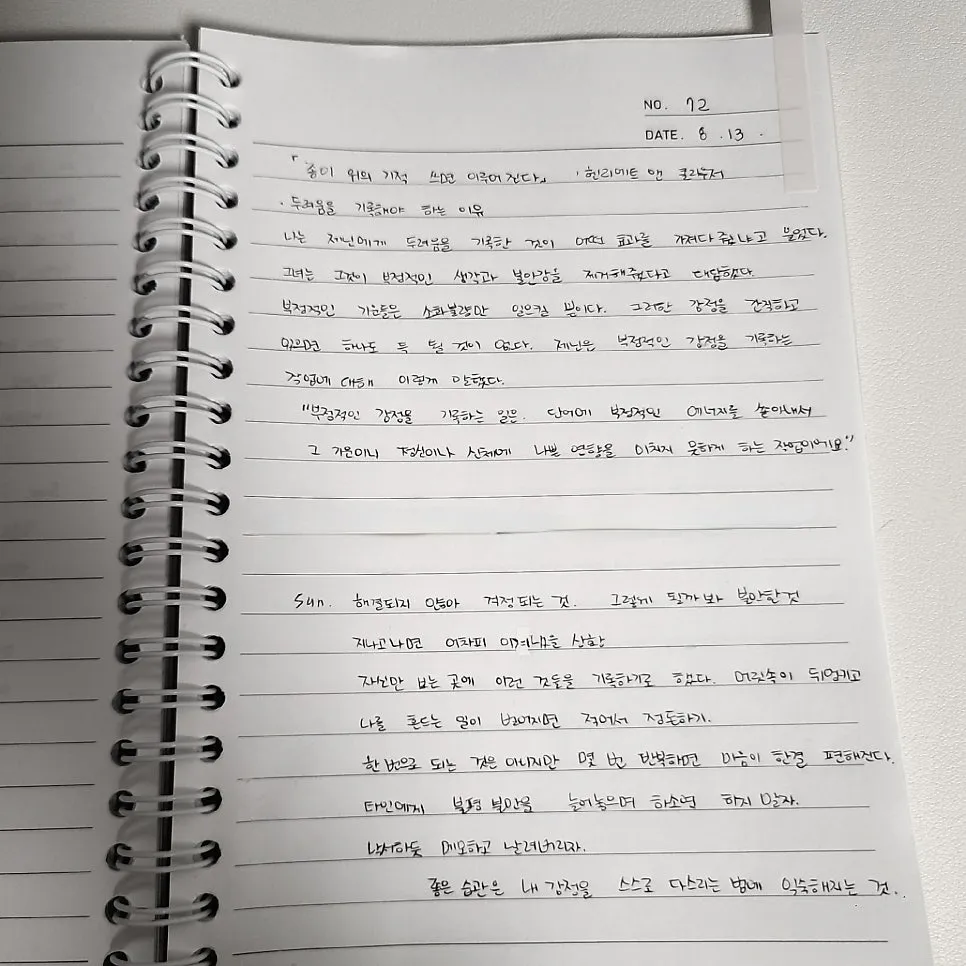 NO. 72
DATE. 8 . 13 .
「종이 위의 기적 쓰면 이루어진다」 · 헨리에트 앤 클라우저
· 두려움을 기록해야 하는 이유
나는 제닌에게 두려움을 기록한 것이 어떤 효과를 가져다 줬냐고 물었다.
그녀는 그것이 부정적인 생각과 불안감을 제거해줬다고 대답했다.
부정적인 기운들은 소화불량만 일으킬 뿐이다. 그러한 감정을 간직하고
있으면 하나도 득 될 것이 없다. 제닌은 부정적인 감정을 기록하는
작업에 대해 이렇게 말했다.
"부정적인 감정을 기록하는 일은. 단어에 부정적인 에너지를 쏟아내서
그 기운이 정신이나 신체에 나쁜 영향을 미치지 못하게 하는 작업이에요."
Sun. 해결되지 않아 걱정되는 것. 그렇게 될까봐 불안한 것
지나고나면 어차피
자신만 보는 곳에 이런 것들을 기록하기로 했다. 머릿속이 뒤엉키고
나를 흔드는 일이 벌어지면 적어서 정돈하기.
한 번으로 되는 것은 아니지만 몇 번 반복하면 마음이 한결 편해진다.
타인에게 불평 불만을 늘어놓으며 하소연 하지 말자.
낙서하듯 메모하고 날려버리자.
좋은 습관은 내 감정을 스스로 다스리는 법에 익숙해지는 것.